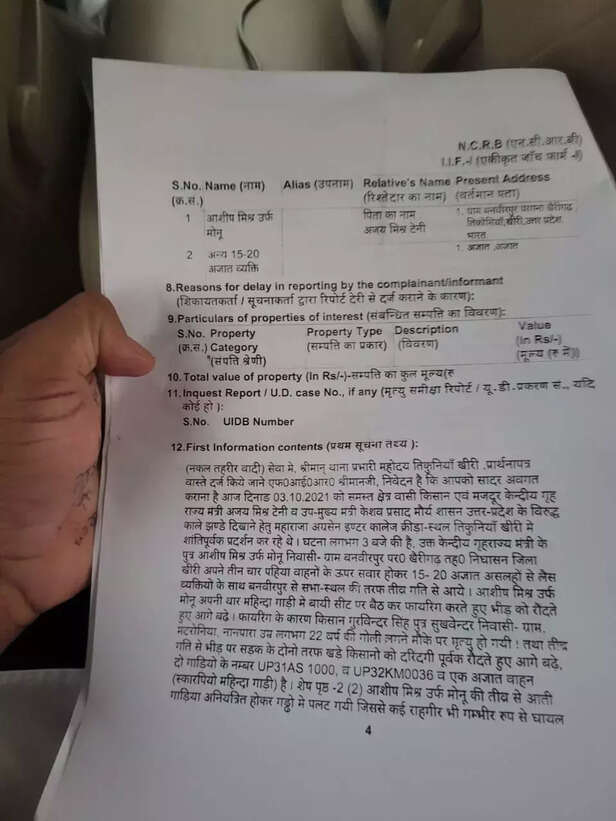 N.C.R.B (एन.सी.आर.बी)
I.I.F.-I (एकीकृत जाँच फार्म -I)
S.No. Name (नाम) Alias (उपनाम) Relative's Name Present Address
(क्र.सं.) (रिश्तेदार का नाम) (वर्तमान पता)
1 आशीष मिश्र उर्फ मोनू पिता का नाम अजय मिश्र टेनी 1. ग्राम बनवीरपुर परगना खैरीगढ़ तिकोनियाँ,खीरी,उत्तर प्रदेश, भारत
2 अन्य 15-20 अज्ञात व्यक्ति 1. अज्ञात ,अज्ञात
8.Reasons for delay in reporting by the complainant/informant
(शिकायतकर्ता / सूचनाकर्ता द्वारा रिपोर्ट देरी से दर्ज कराने के कारण):
9.Particulars of properties of interest (संबन्धित सम्पत्ति का विवरण):
S.No. Property Property Type Description Value
(क्र.सं.) Category (सम्पत्ति का प्रकार) (विवरण) (In Rs/-)
(संपत्ति श्रेणी) (मूल्य (रु में))
10. Total value of property (In Rs/-)-सम्पत्ति का कुल मूल्य(रु
11. Inquest Report / U.D. case No., if any (मृत्यु समीक्षा रिपोर्ट / यू.डी.प्रकरण सं., यदि
कोई हो ):
S.No. UIDB Number
12.First Information contents (प्रथम सूचना तथ्य ):
(नकल तहरीर वादी) सेवा मे, श्रीमान् थाना प्रभारी महोदय तिकुनियाँ खीरी .प्रार्थनापत्र
वास्ते दर्ज किये जाने एफ0आई0आर0 श्रीमानजी, निवेदन है कि आपको सादर अवगत
कराना है आज दिनाङ 03.10.2021 को समस्त क्षेत्र वासी किसान एवं मजदूर केन्द्रीय गृह
राज्य मंत्री अजय मिश्र टेनी व उप-मुख्य मंत्री केशव प्रसाद मौर्य शासन उत्तर-प्रदेश के विरुद्ध
काले झण्डे दिखाने हेतु महाराजा अग्रसेन इण्टर कालेज क्रीडा-स्थल तिकुनियाँ खीरी मे
शांतिपूर्वक प्रदर्शन कर रहे थे । घटना लगभग 3 बजे की है, उक्त केन्द्रीय गृहराज्य मंत्री के
पुत्र आशीष मिश्र उर्फ मोनू निवासी- ग्राम बनवीरपुर पर0 खैरीगढ़ तह0 निघासन जिला
खीरी अपने तीन चार पहिया वाहनों के ऊपर सवार होकर 15- 20 अज्ञात असलहों से लैस
व्यक्तियो के साथ बनवीरपुर से सभा-स्थल की तरफ तीव्र गति से आये । आशीष मिश्र उर्फ
मोनू अपनी थार महिन्द्रा गाड़ी मे बायी सीट पर बैठ कर फायरिंग करते हुए भीड़ को रौंदते
हुए आगे बढे । फायरिंग के कारण किसान गुरविन्दर सिंह पुत्र सुखवेन्दर निवासी- ग्राम,
मटरोनिया, नानपारा उम्र लगभग 22 वर्ष की गोली लगने मौके पर मृत्यु हो गयी ! तथा तीव्र
गति से भीड़ पर सड़क के दोनो तरफ खडे किसानो को दरिदगी पूर्वक रौंदते हुए आगे बढे,
दो गाडियो के नम्बर UP31AS 1000, व UP32KM0036 व एक अज्ञात वाहन
(स्कारपियो महिन्द्रा गाडी) है । शेष पृष्ठ -2 (2) आशीष मिश्र उर्फ मोनू की तीव्र से आती
गाडिया अनियत्रित होकर गड्ढो मे पलट गयी जिससे कई राहगीर भी गम्भीर रुप से घायल
4